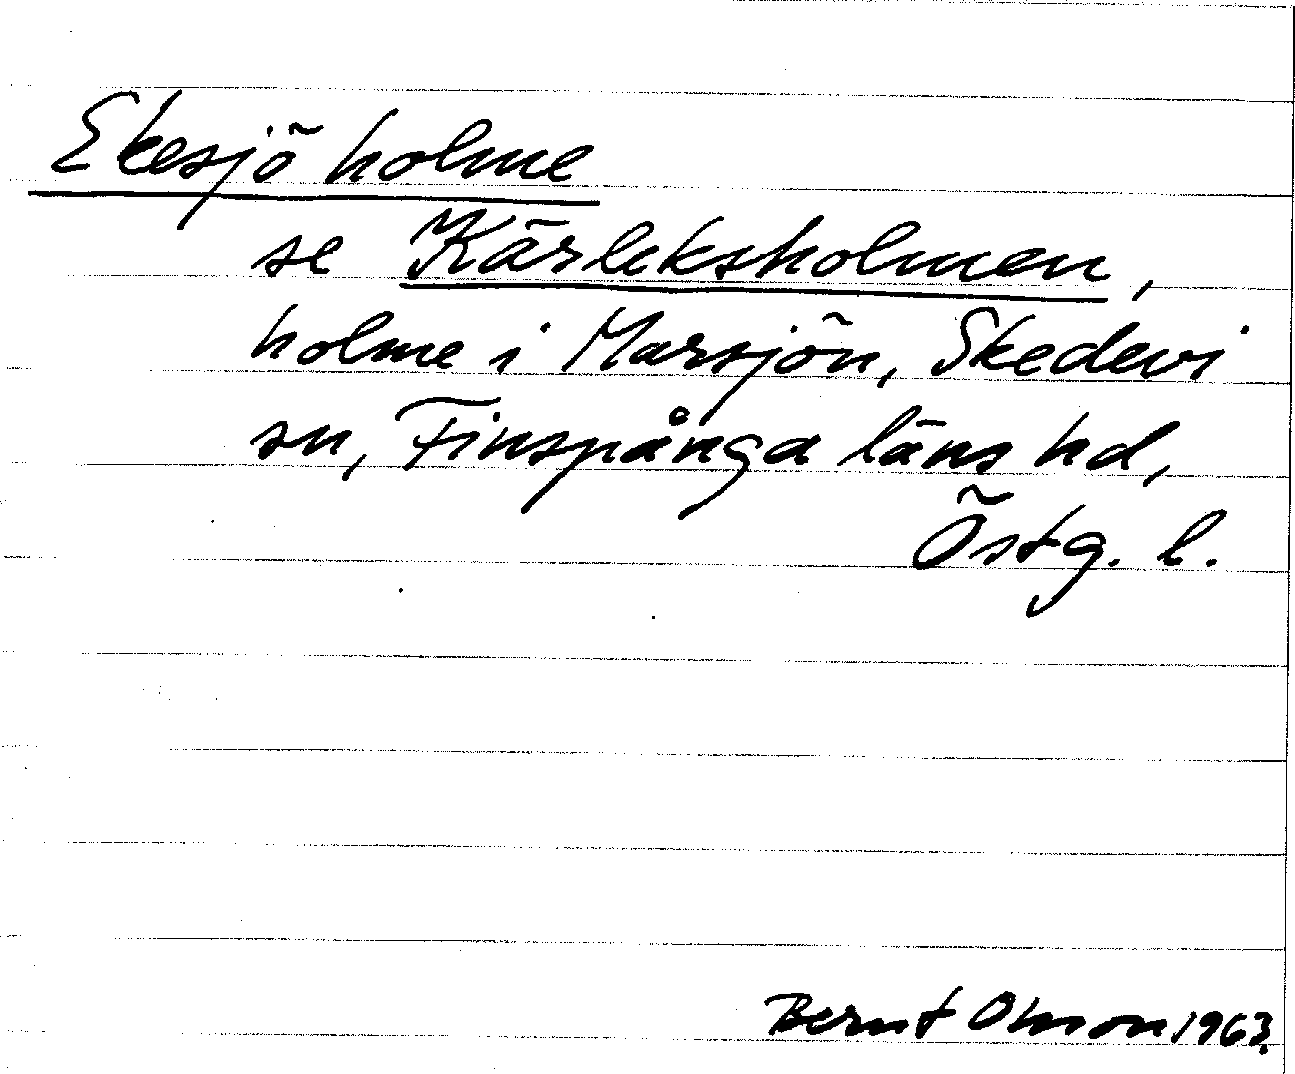 Ekesjö holme
se Kärleksholmen,
holme i Marsjön, Skedevi
sn, Finspånga läns hd,
Östg. l.
Bernt Olsson 1963.